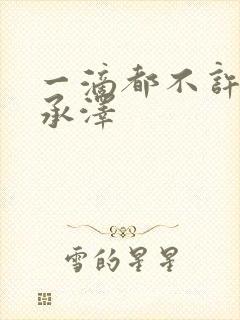 一滴都不許
承澤
雪的星星